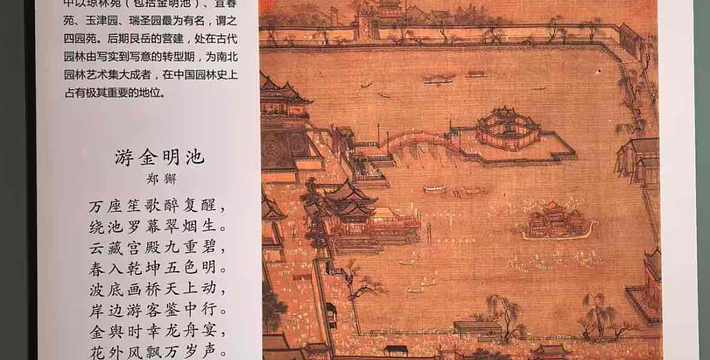 中以琼林苑（包括金明池）、宜春
苑、玉津园、瑞圣园最为有名，谓之
四园苑。后期艮岳的营建，处在古代
园林由写实到写意的转型期，为南北
园林艺术集大成者，在中国园林史上
占有极其重要的地位。
游金明池
郑獬
万座笙歌醉复醒，
绕池罗幕翠烟生。
云藏宫殿九重碧，
春入乾坤五色明。
波底画桥天上动，
岸边游客鉴中行。
金舆时幸龙舟宴，
花外风飘万岁声。